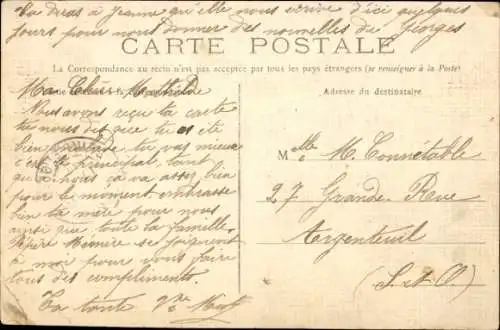 tu diras à Jeanne qu'elle nous écrive d'ici quelques
jours pour nous donner des nouvelles de Georges
CARTE POSTALE
La Correspondance au recto n'est pas acceptée par tous les pays étrangers (se renseigner à la Poste)
Adresse du destinataire
Ma Chère Mathilde
Nous avons reçu ta carte
tu nous dit que tu as été
bien tu vas mieux
c'est le principal, tant
qu'à nous ça va assez bien
pour le moment, embrasse
bien ta mère pour nous
ainsi que toute la famille
se joignent
à moi pour vous faire
tous des compliments.
Ta tante Vve
Mlle M. Connétable
27 Grande Rue
Argenteuil
(S. et O.)